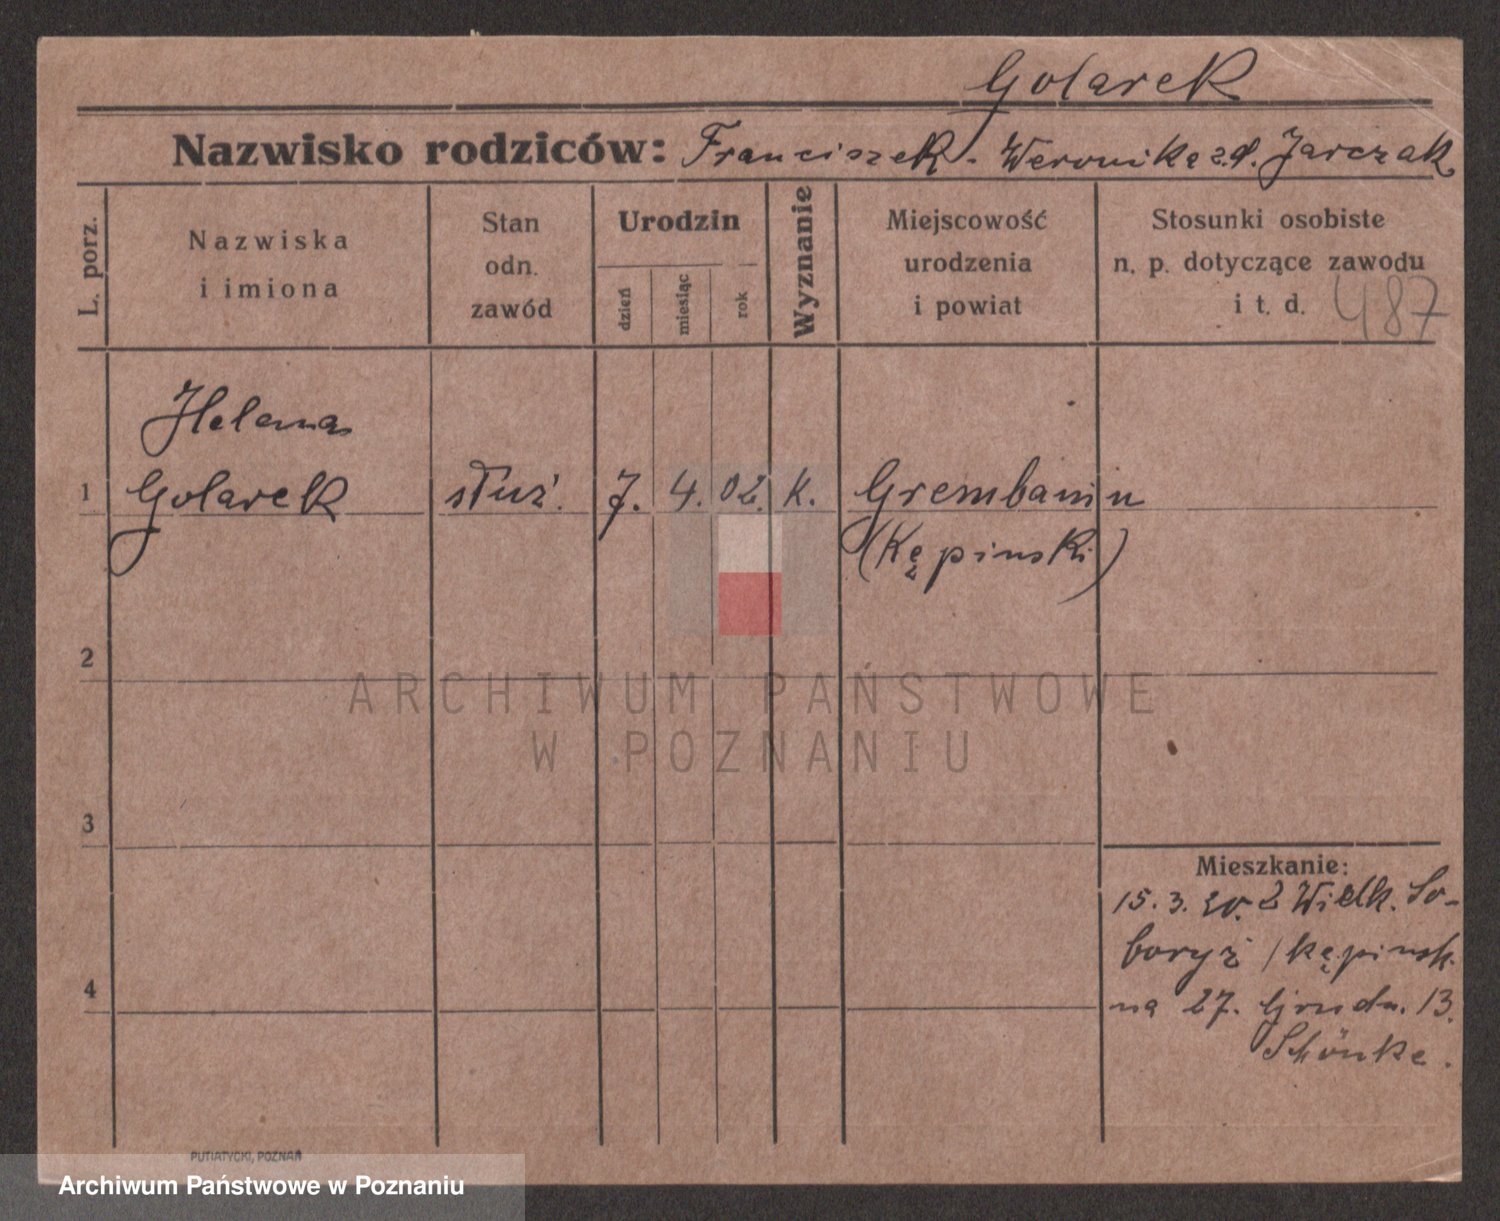 Golarek
Nazwisko rodziców: Franciszek - Weronika z.d. Jarczak
L. porz.
Nazwiska
i imiona
Stan
odn.
zawód
Urodzin
dzień
miesiąc
rok
Wyznanie
Miejscowość
urodzenia
i powiat
Stosunki osobiste
n. p. dotyczące zawodu
i t. d.
487
Helena
1 Golarek służ. 7. 4. 02. k. Grembanin
(Kępinski)
2
ARCHIWUM PAŃSTWOWE
W POZNANIU
3
Mieszkanie:
15. 3. 20. z Wielk. So-
boryż /kępinsk.
4
na 27. Grudn. 13.
Schönke.
PUTIATYCKI, POZNAŃ
Archiwum Państwowe w Poznaniu